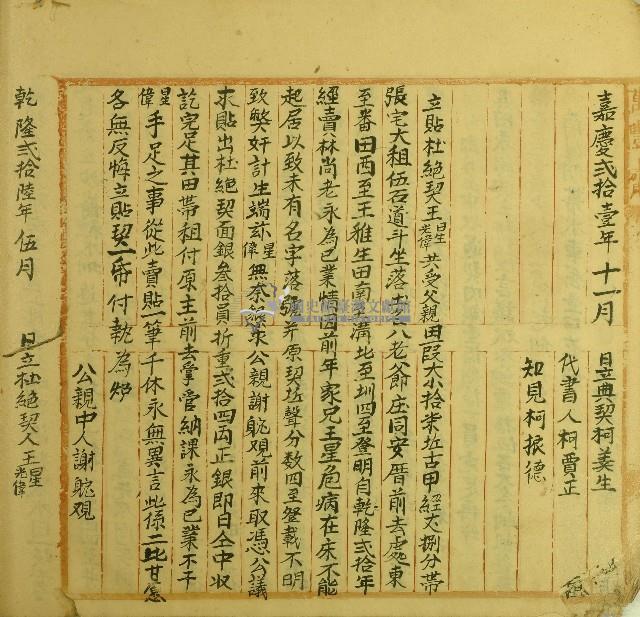 嘉慶弍拾壹年 十一月 日立典契柯羙生
代書人柯賈正
知見柯振德
立貼杜絕契王星光偉共受父親田叚大小拾柒坵古甲經丈捌分帶
張宅大租伍石道斗坐落土名八老爺庄同安厝前去處東
至番田西至王雅生田南至溝北至圳四至登明自乾隆弍拾年
經賣林尚老永為己業情因前年家兄王星危病在床不能
起居以致未有名字落號并原契坵聲分数四至登載不明
致獘奸計生端茲星偉無奈懇求公親謝駝观前來取憑公議
求貼出杜絕契面銀叁拾員折重弍拾四両正銀即日仝中収
訖完足其田帶租付原主前去掌管納課永為己業不干
星偉手足之事從此賣貼一筆千休永無異言此係二比甘愿
各無反悔立貼契一帋付執為炤
公親中人謝駝观
乾隆弍拾陸年 伍月 日立杜絕契人王星光偉
國史館臺灣文獻館